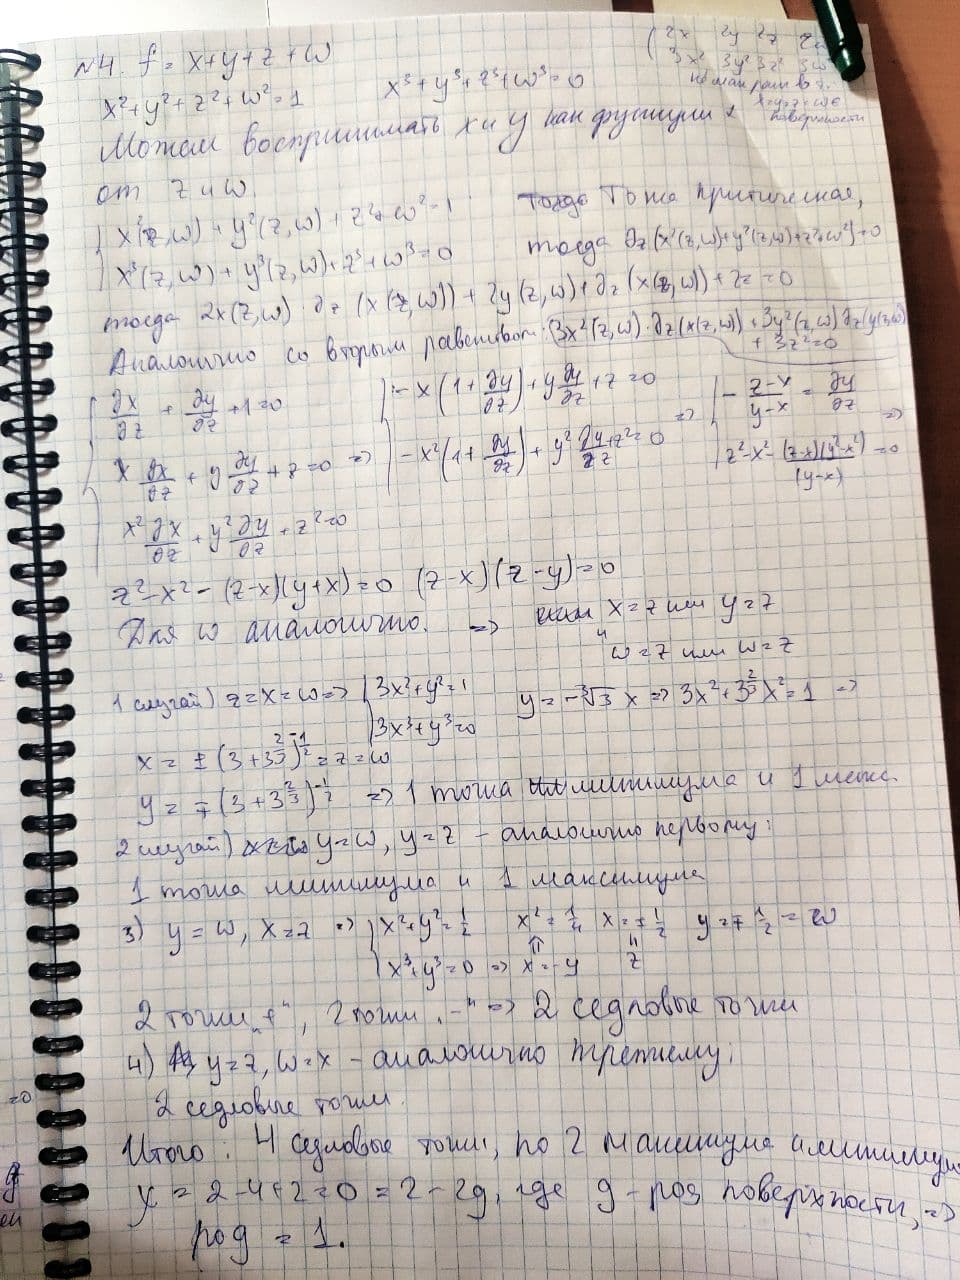 №4. f = x+y+z+w
x²+y²+z²+w²=1    x³+y³+z³+w³=0
(2x 2y 2z 2w
3x² 3y² 3z² 3w²
x=y=z=w∈
поверхности
Можем воспринимать x и y как функции
от z и w.
{ x²(z,w) + y²(z,w) + z²+w²=1    Тоже критическая,
x³(z,w) + y³(z,w)+z³+w³=0    тогда ∂z(x²(z,w)+y²(z,w)+z²+w²)=0
тогда 2x(z,w)·∂z(x(z,w)) + 2y(z,w)+∂z(x(z,w))+2z=0
Аналогично со вторым равенством: (3x²(z,w)·∂z(x(z,w))+3y²(z,w)∂z(y(z,w)
+ 3z²=0
{ ∂x/∂z + ∂y/∂z + 1=0    { -x(1+∂y/∂z)+y ∂y/∂z+z=0    { -(z-x)/(y-x) = ∂y/∂z
x ∂x/∂z + y ∂y/∂z + z=0 => -x²(1+∂y/∂z)+y² ∂y/∂z+z²=0 => z²-x²-(z-x)(y²-x²)/(y-x)=0 =>
x² ∂x/∂z + y² ∂y/∂z + z²=0
z²-x²-(z-x)(y+x)=0    (z-x)(z-y)=0
Для w аналогично. => или x=z или y=z
и w=z или w=z
1 случай) z=x=w=> { 3x²+y²=1    y=-∛3 x => 3x²+3^(2/3)x²=1 =>
3x³+y³=0
x = ±(3+3^(2/3))^(-1/2) = z = w
y = ∓(3+3^(2/3))^(-1/2) => 1 точка минимума и 1 макс.
2 случай) y=w, y=z – аналогично первому:
1 точка минимума и 1 максимума
3) y=w, x=z => { x²+y²=1/2    x²=1/4    x=∓1/2    y=∓1/2 = w
x³+y³=0 => x=-y    z
2 точки „+", 2 точки „-" => 2 седловые точки
4) y=z, w=x – аналогично третьему:
2 седловые точки.
Итого: 4 седловые точки, по 2 максимума и минимум
χ = 2-4+2=0=2-2g, где g-род поверхности, =>
род = 1.
=0